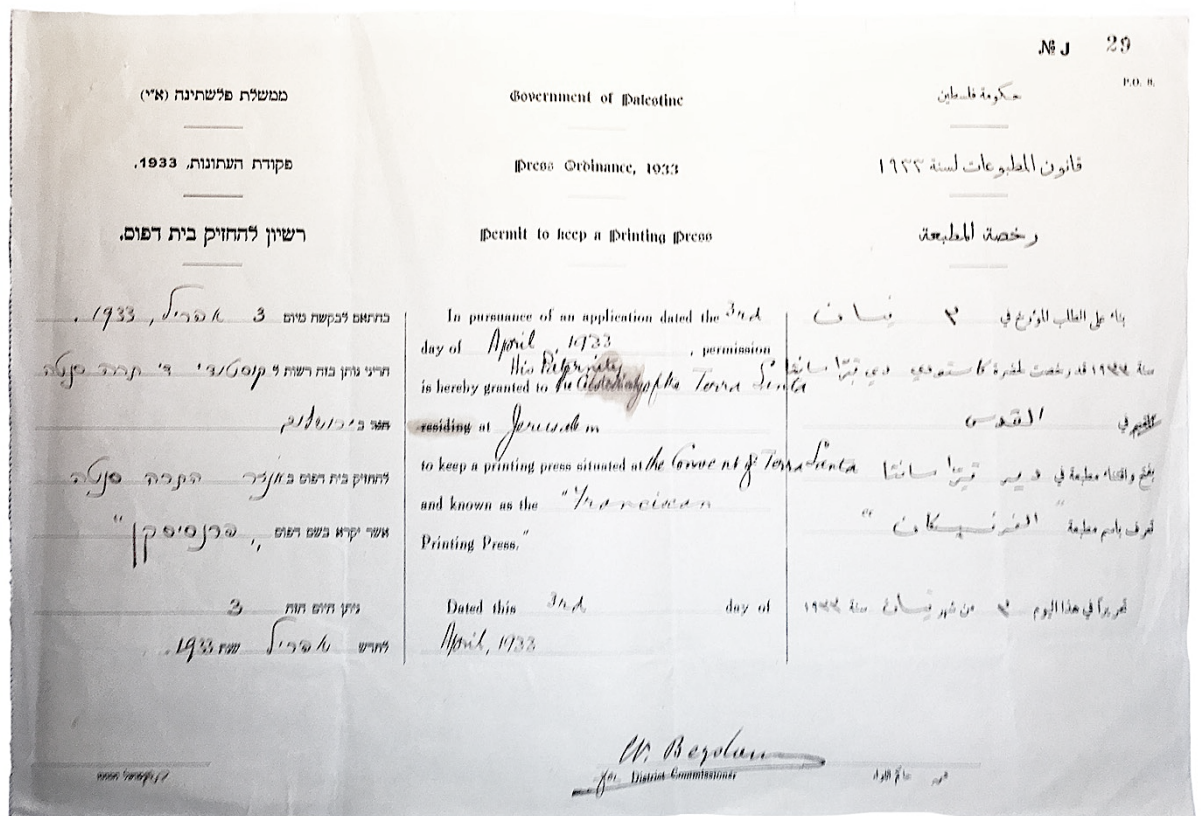 № J 29
P.O. H.
ממשלת פלשתינה (א"י)
פקודת העתונות, 1933.
רשיון להחזיק בית דפוס.
בהתאם לבקשה מיום 3 אפריל, 1933.
הריני נותן בזה רשות ל קוסטודי ד' תרה סנטה
בירושלים
להחזיק בית דפוס ב התרה סנטה
אשר יקרא בשם דפוס ,, פרנסיסקן"
ניתן היום הזה 3
לחדש אפריל שנת 1933
Government of Palestine
Press Ordinance, 1933
Permit to keep a Printing Press
In pursuance of an application dated the 3rd
day of April, 1933, permission
His Paternity
is hereby granted to the Custodian of the Terra Santa
residing at Jerusalem
to keep a printing press situated at the Convent of Terra Santa
and known as the "Franciscan
Printing Press."
Dated this 3rd day of
April, 1933
for District Commissioner
حكومة فلسطين
قانون المطبوعات لسنة ١٩٣٣
رخصة المطبعة
بناء على الطلب المؤرخ في ٣ نيسان
سنة ١٩٣٣ قد رخصت لحضرة كاستودي دي تيرّا سانتا
المقيم في القدس
بفتح واقتناء مطبعة في دير تيرّا سانتا
تعرف باسم مطبعة "الفرنسيكان"
تحريراً في هذا اليوم ٣ من شهر نيسان سنة ١٩٣٣
حاكم اللواء